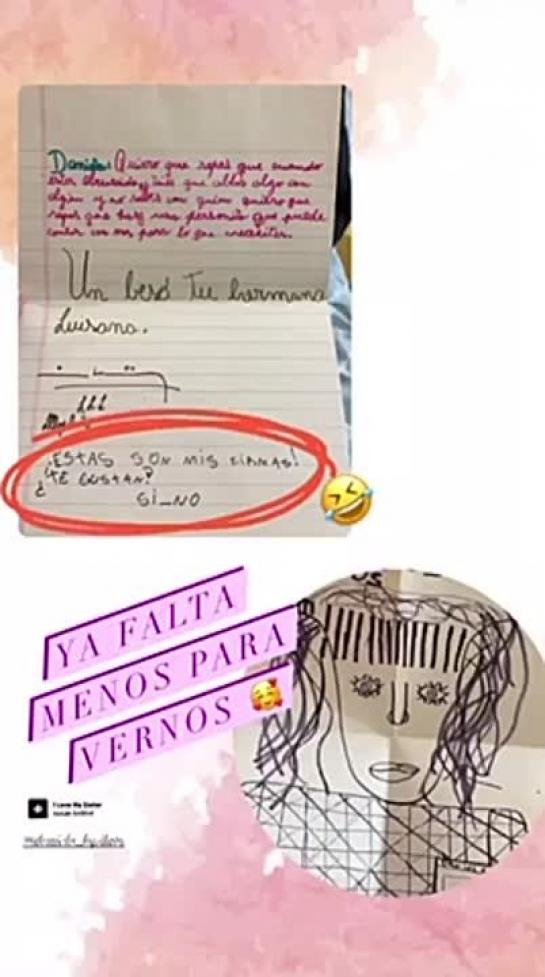 Daniela: Quiero que sepas que cuando
estes aburrida y que algo con
alguien y no sabes con quien quiero que
sepas que hay una persona que puede
contar con vos para lo que necesites.
Un beso Tu hermana
Luisana.
¡ESTAS SON MIS FIRMAS!
¿TE GUSTAN?
SÍ_NO
YA FALTA
MENOS PARA
VERNOS
I Love My Sister